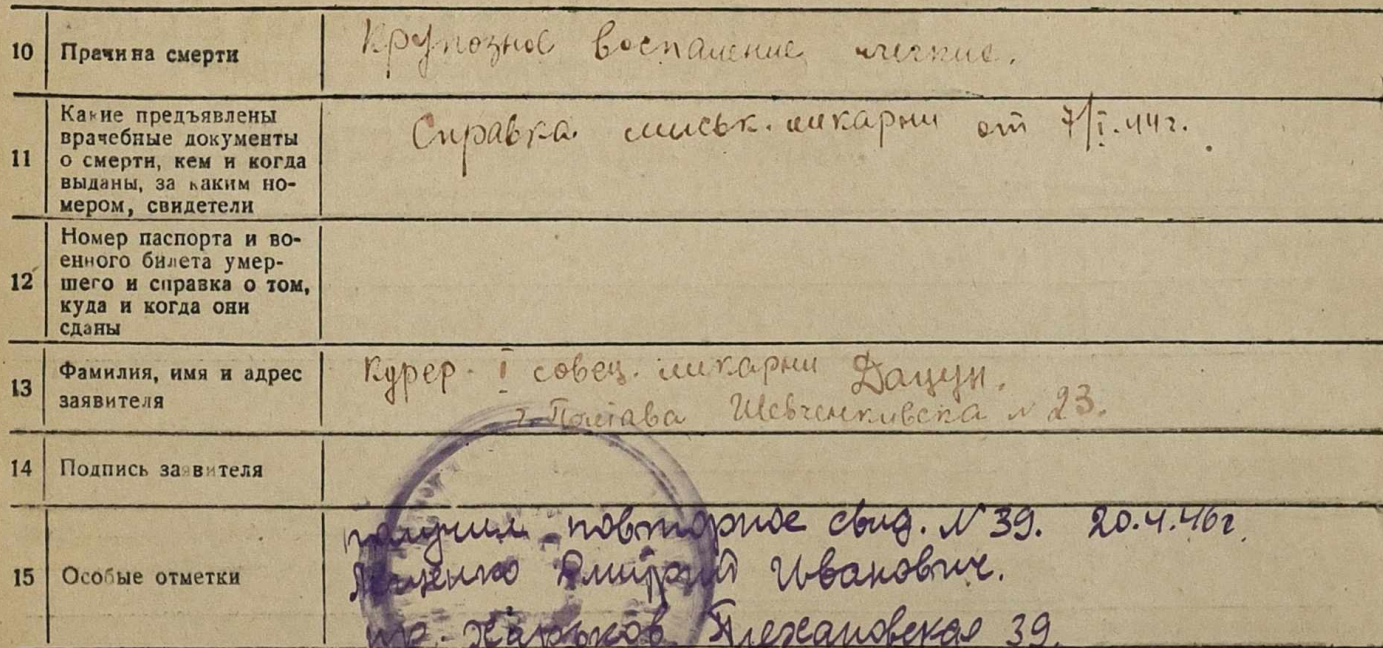 10 Причина смерти Крупозное воспаление легкие.
11 Какие предъявлены
врачебные документы
о смерти, кем и когда
выданы, за каким но-
мером, свидетели
Справка миськ. ликарни от 7/I.44г.
12 Номер паспорта и во-
енного билета умер-
шего и справка о том,
куда и когда они
сданы
13 Фамилия, имя и адрес
заявителя
Курер I совец. ликарни Дацун.
г. Полтава Шевченкивска № 23.
14 Подпись заявителя
15 Особые отметки
получил повторное свид. № 39. 20.4.46г.
Дмитрий Иванович.
Харьков Плехановская 39.